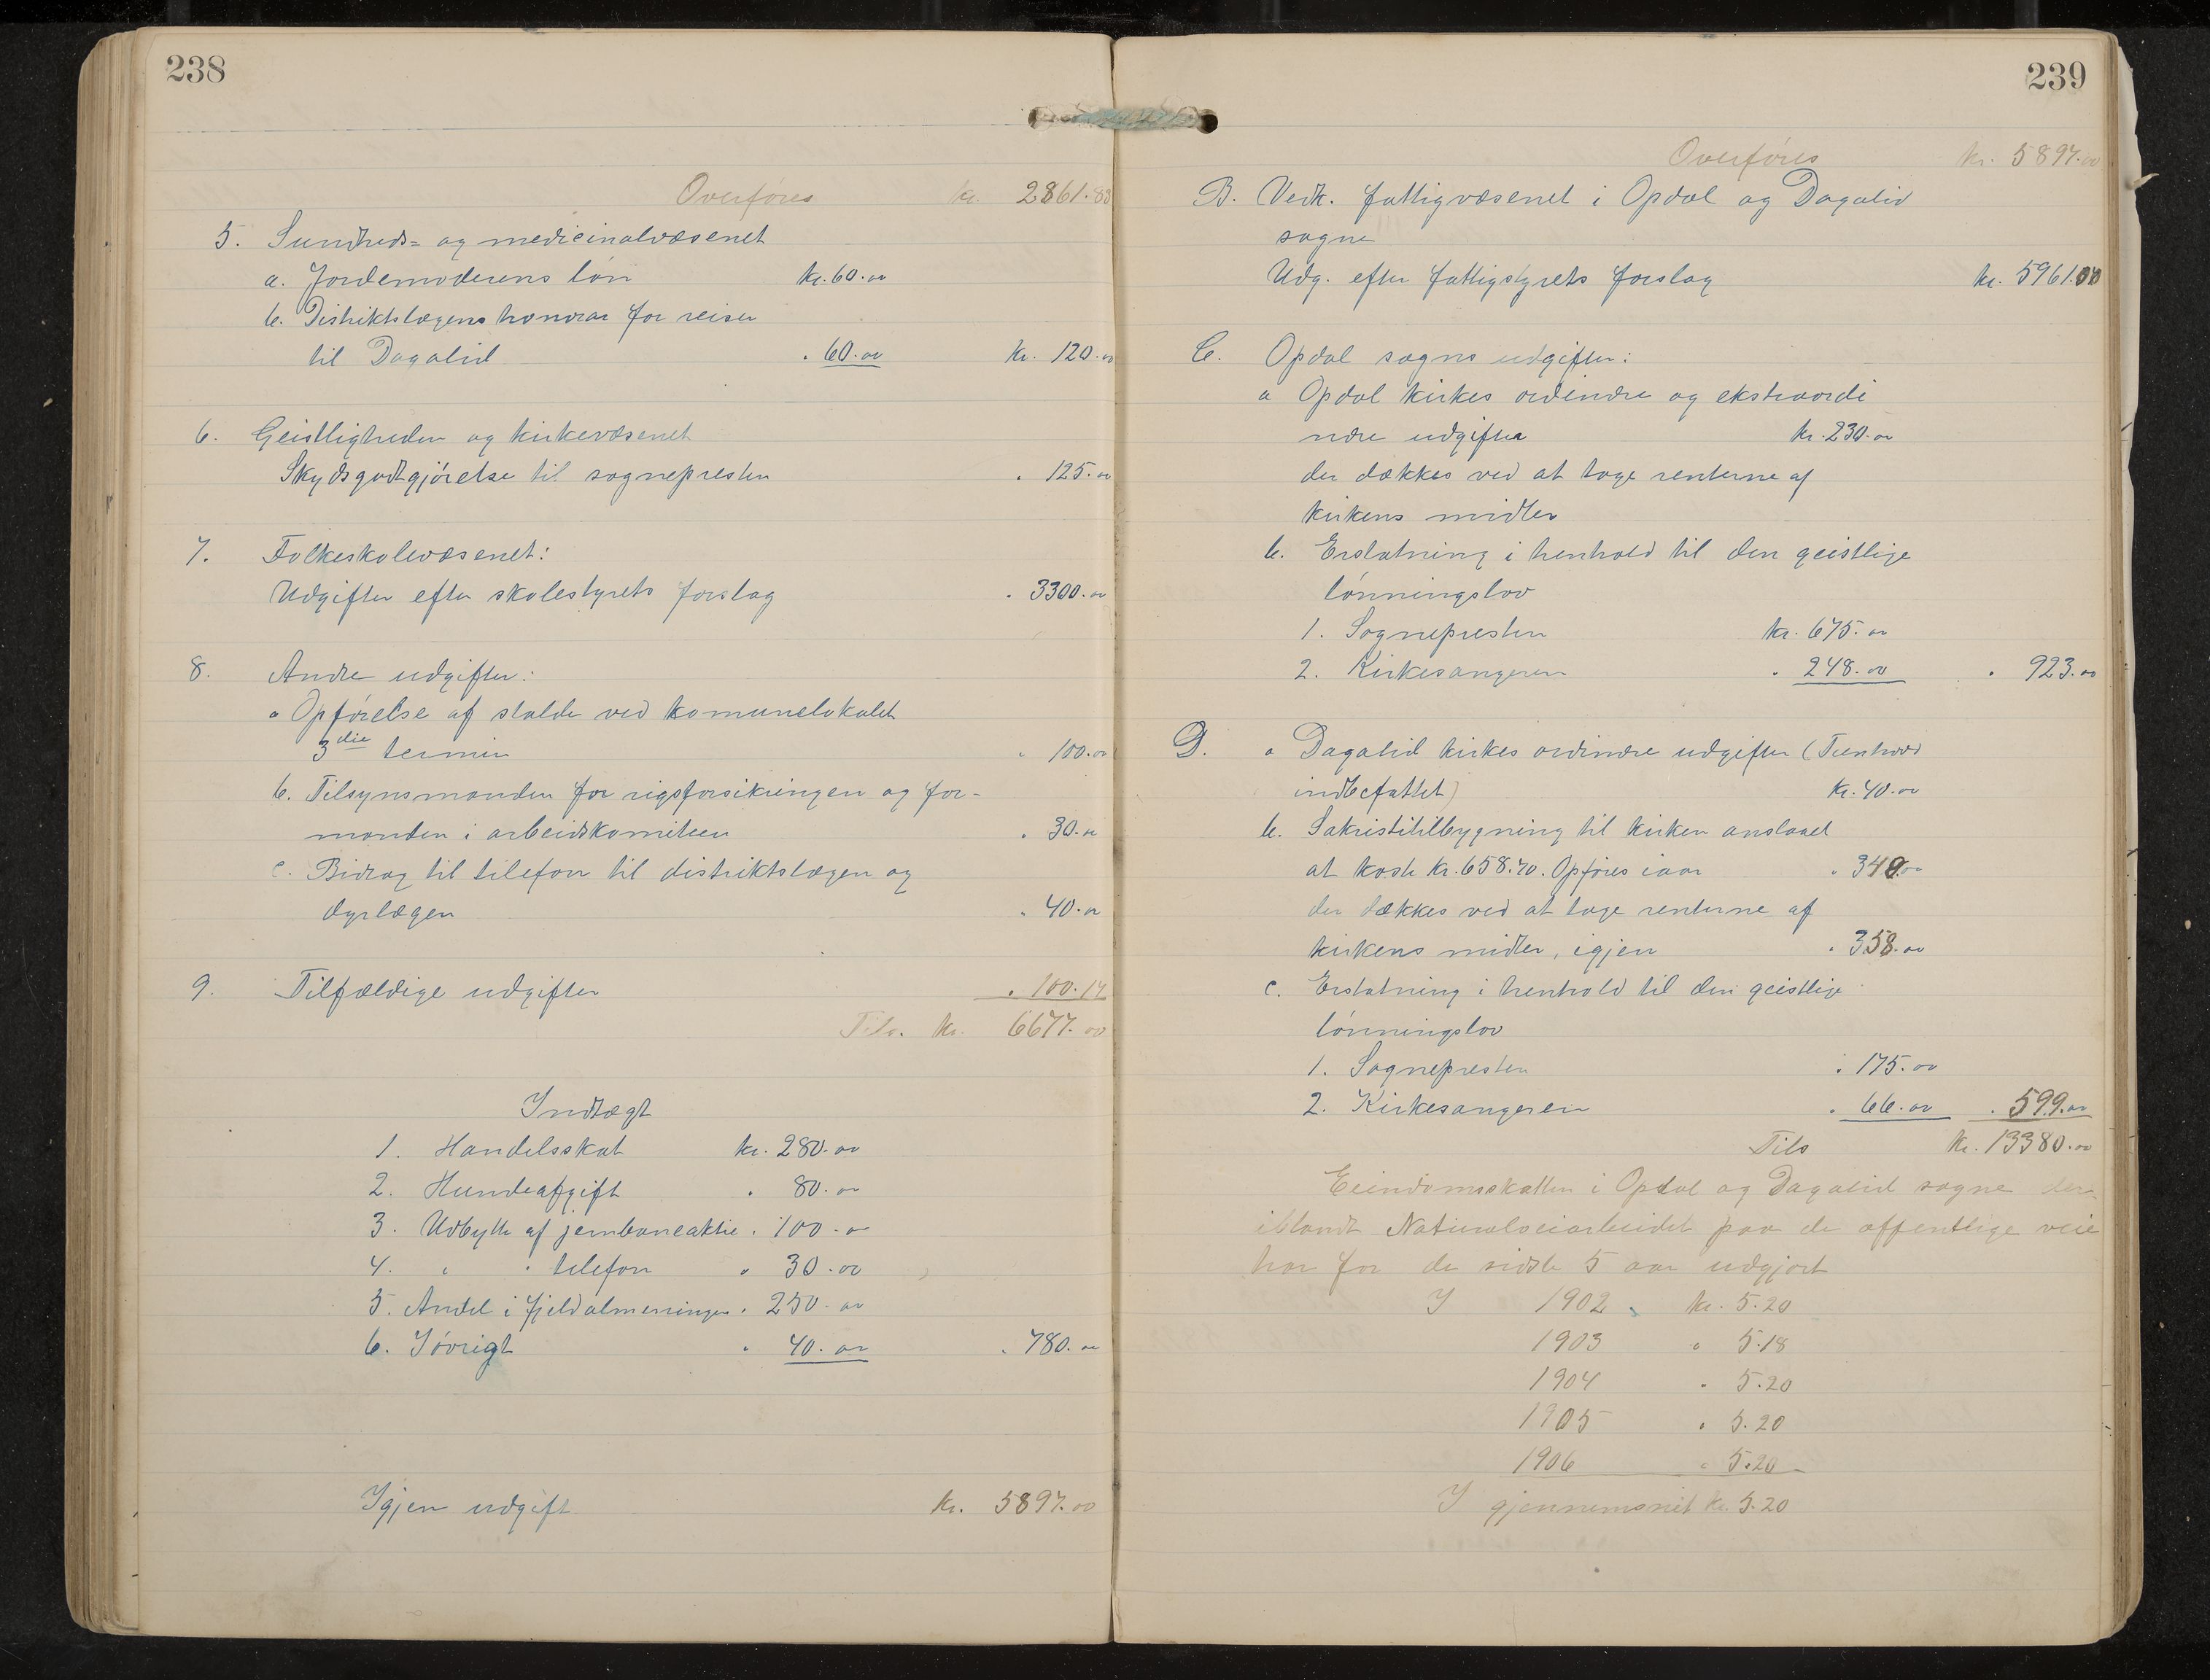 238
Overføres kr. 2861.83
5. Sundheds= og medicinalvæsenet
a. Jordemoderens løn kr. 60.00
b. Distriktslægens honorar for reiser
til Dagalid " 60.00 kr. 120.00
6. Geistligheden og kirkevæsenet
Skydsgodtgjørelse til sognepresten " 125.00
7. Folkeskolevæsenet:
Udgifter efter skolestyrets forslag " 3300.00
8. Andre udgifter:
a Opførelse af stalde ved komunelokalet
3die termin " 100.00
b. Tilsynsmanden for rigsforsikringen og for-
manden i arbeidskomiteen " 30.00
c. Bidrag til telefon til distriktslægen og
dyrlægen " 40.00
9. Tilfældige udgifter " 100.17
Tils. kr. 6677.00
Indtægt
1. Handelsskat kr. 280.00
2. Hundeafgift " 80.00
3. Udbytte af jernbaneaktie " 100.00
4. " " telefon " 30.00
5. Andel i fjeldalmeningen " 250.00
6. Iøvrigt " 40.00 " 780.00
Igjen udgift kr. 5897.00
239
Overføres kr. 5897.00
B. Vedk. fattigvæsenet i Opdal og Dagalid
sogne
Udg. efter fattigstyrets forslag kr. 5961.00
C. Opdal sogns udgifter:
a Opdal kirkes ordinære og ekstraordi
nære udgifter kr. 230.00
der dækkes ved at tage renterne af
kirkens midler
b. Erstatning i henhold til den geistlige
lønningslov
1. Sognepresten kr. 675.00
2. Kirkesangeren " 248.00 " 923.00
D. a Dagalid kirkes ordinære udgifter (Tunhovd
indbefattet) kr. 40.00
b. Sakristitilbygning til kirken anslaaet
at koste kr. 658.70. Opføres iaar " 340.00
der dækkes ved at tage renterne af
kirkens midler, igjen " 358.00
c. Erstatning i henhold til den geistlige
lønningslov
1. Sognepresten " 175.00
2. Kirkesangeren " 66.00 " 599.00
Tils kr. 13380.00
Eiendomsskatten i Opdal og Dagalid sogne der-
iblandt Naturalveiarbeidet paa de offentlige veie
har for de sidste 5 aar udgjort
I 1902 kr. 5.20
1903 " 5.18
1904 " 5.20
1905 " 5.20
1906 " 5.20
I gjennemsnit kr. 5.20